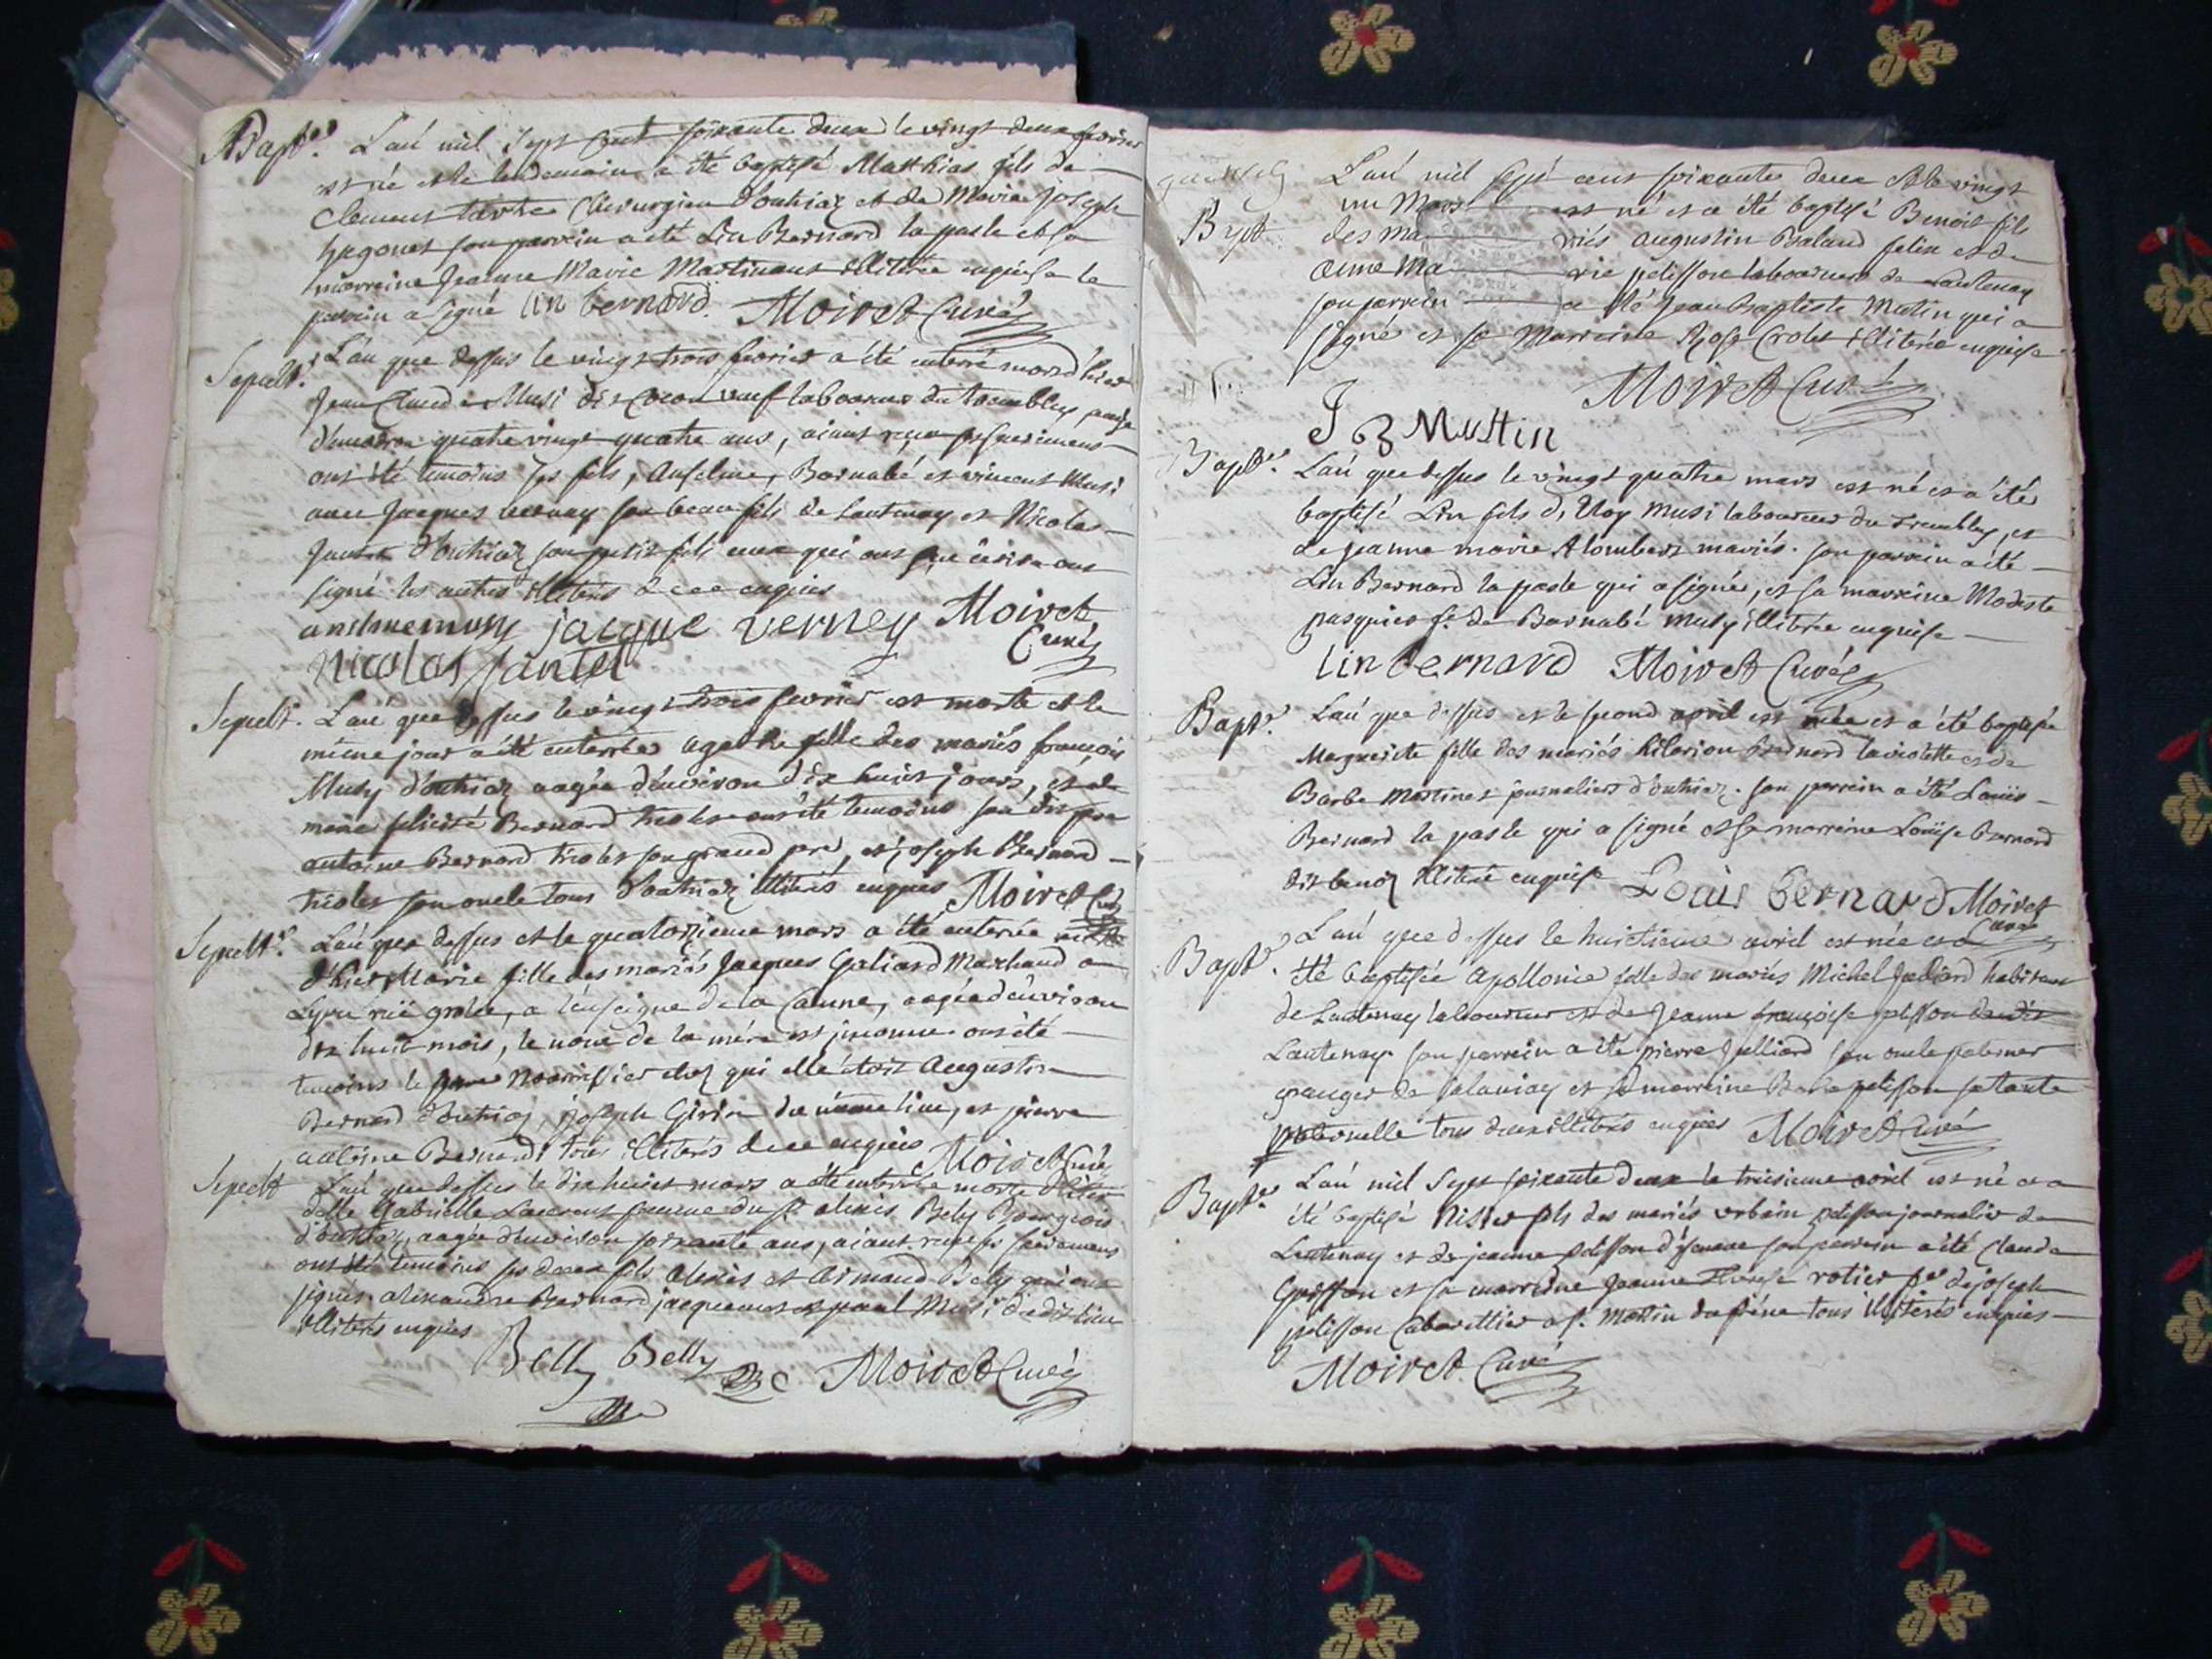 Bapt.
L'an mil sept cent soixante deux le vingt deux fevrier
est né et le lendemain a été baptisé Matthias fils de
Clement tartre Chirurgien d'outriaz et de Marie Joseph
hugonet son parrein a été Lin Bernard la paste et sa
marreine Jeanne Marie Martinant illiterée enquise le
parrein a signé Lin bernard. Moiret Curé
Sepult.
L'an que dessus le vingt trois fevrier a été enterré mort d'hier
Jean Claude Musi dit veuf laboureur du Trembley
d'environ quatre vingt quatre ans, aiant reçu ses sacrements
ont été temoins ses fils, Anselme, Barnabé et vincent Musi
avec Jacques verney son beau fils de Lantenay et Nicolas
d'outriaz son petit fils ceux qui ont sçu écrire ont
signé les autres illiterés de ce enquis
anshmemusy jacque verney Moiret
Curé
nicolas Jantet
Sepult.
L'an que dessus le vingt trois fevrier est morte et le
même jour a été enterrée agathe fille des mariés françois
Musy d'outriaz aagée d'environ dix huit jours, et de
marie felicité Bernard triolet ont été temoins son dit pere
antoine Bernard triolet son grand pere, et joseph Bernard
triolet son oncle tous d'outriaz illiterés enquis Moiret Curé
Sepult.
L'an que dessus et le quatorzieme mars a été enterrée
d'hier Marie fille des mariés Jacques Galiard Marchand a
Lyon rüe grolée, a l'enseigne de la Canne, aagée d'environ
dix huit mois, le nom de la mére est inconnu ont été
temoins le pere Nourrissier chez qui elle étoit Augustin
Bernard d'outriaz, joseph Girin du même lieu, et pierre
antoine Bernard, tous illiterés de ce enquis Moiret Curé
Sepult
L'an que dessus le dix huit mars a été enterrée morte d'hier
delle Gabrielle Laurent femme du Sr. alexis Bely Bourgeois
d'outriaz, aagée d'environ soixante ans, aiant reçu ses sacremens
ont été temoins ses deux fils alexis et armand Bely
signés. alexandre Bernard jacquemet et paul Musi dudit lieu
illiterés enquis
Belly Belly Moiret Curé
Bapt
L'an mil sept cent soixante deux et le vingt
un Mars est né et a été baptisé Benoit fils
des ma riés augustin Baland felix et de
anne Ma rie pelisson laboureurs de Lantenay
son parrein a été Jean Baptiste Mutin qui a
signé et sa Marreine Rose Crolet illiterée enquise
Moiret Curé
J B Muttin
Bapt.
L'an que dessus le vingt quatre mars est né et a été
baptisé Lin fils d'Eloy Musi laboureur du Trembley, et
de jeanne marie Alombert mariés. son parrein a été
Lin Bernard la paste qui a signé, et sa marreine Modeste
pasquier fe. de Barnabé Musy illiterée enquise
Lin bernard Moiret Curé
Bapt.
L'an que dessus et le second avril est née et a été baptisée
Marguerite fille des mariés hilarion Bernard la violette et de
Barbe Martinet journaliers d'outriaz. son parrein a été Louis
Bernard la paste qui a signé et sa marreine Louise Bernard
dit benoz illiterée enquise Louis bernard Moiret
Curé
Bapt.
L'an que dessus le huitieme avril est née et a
été baptisée apollonie fille des mariés Michel Julliard habitant
de Lantenay laboureur et de Jeanne françoise pelisson dudit
Lantenay son parrein a été pierre Julliard son oncle paternel
granger de et sa marreine pelisson sa tante
maternelle tous deux illiterés enquis Moiret Curé
Bapt.
L'an mil sept soixante deux le treisieme avril est né et a
été baptisé Nisier fils des mariés urbain pelisson journalier de
Lantenay et de jeanne pelisson d' son parrein a été Claude
et sa marreine Jeanne Therese rotier fe. de joseph
pelisson Cabarettier a St. Martin du frêne tous illiterés enquis
Moiret. Curé